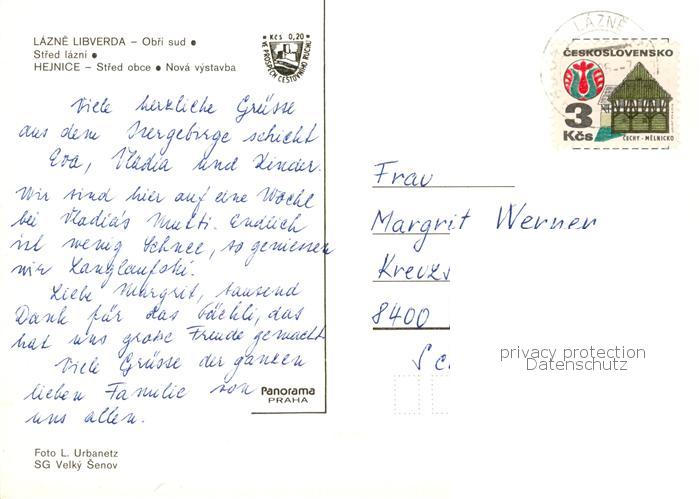 LÁZNĚ LIBVERDA – Obří sud •
Střed lázní •
HEJNICE – Střed obce • Nová výstavba
Kčs 0,20
VE PROSPĚCH CESTOVNÍHO RUCHU
LÁZNĚ
ČESKOSLOVENSKO
3
Kčs
ČECHY - MĚLNICKO
Viele herzliche Grüsse
aus dem Isergebirge schickt
Eva, Vladia und Kinder.
Wir sind hier auf eine Woche
bei Vladia's Mutti. Endlich
ist wenig Schnee, so geniessen
wir Langlaufski.
Liebe Margrit, tausend
Dank für das Päckli, das
hat uns grosse Freude gemacht
Viele Grüsse der ganzen
lieben Familie von
uns allen.
Frau
Margrit Werner
Kreuzs
8400
privacy protection
Datenschutz
Panorama
PRAHA
Foto L. Urbanetz
SG Velký Šenov